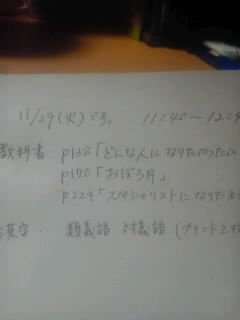 11/29(火)です。 11:40〜12:
教科書 p138「どんな人になりたかったい
p170「おぼろ月」
p224「スペシャリストになりたま
漢字・ 類義語 対義語 (プリント2